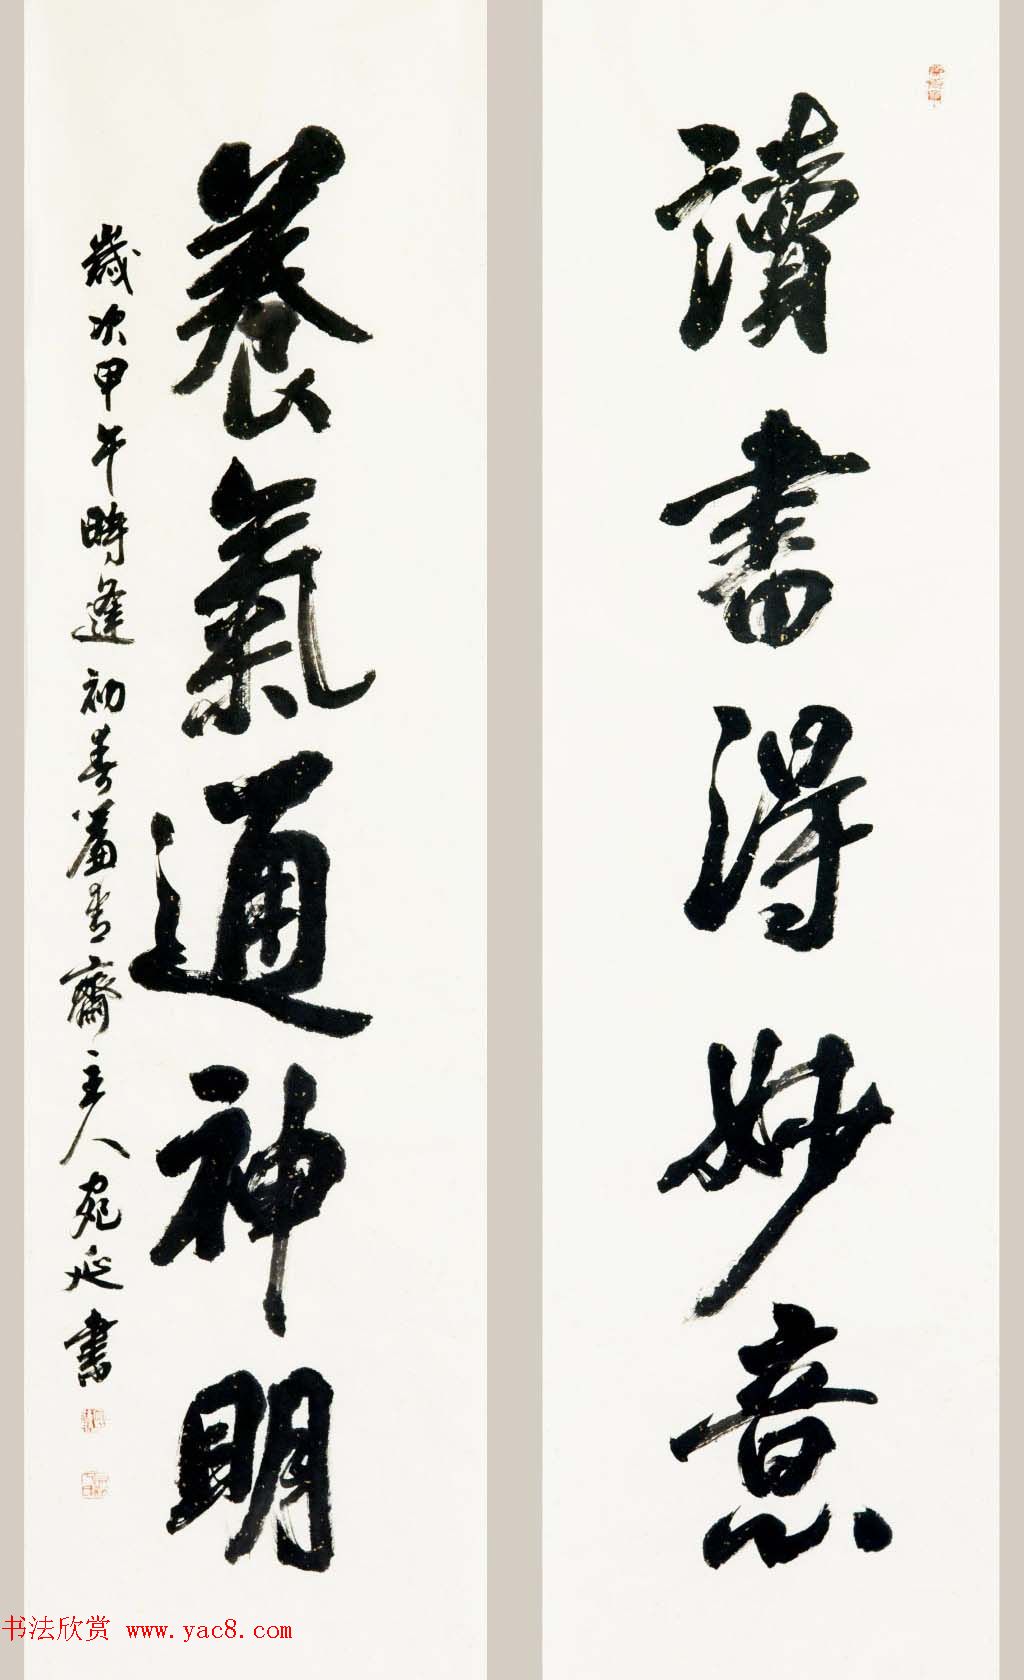 讀書得妙意
養氣通神明
歲次甲午時逢初春蕾青齋主人宛延書
书法欣赏 www.yac8.com